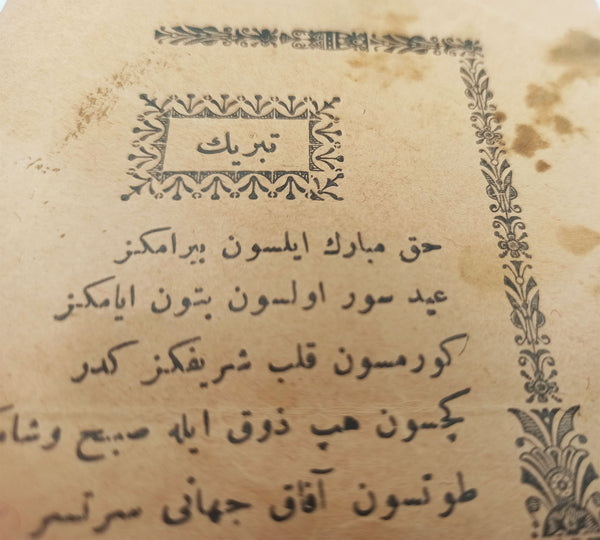 تبريك
حق مبارك ايلسون بيرامكز
عيد سور اولسون بتون ايامكز
كورمسون قلب شريفكز كدر
كچسون هپ ذوق ايله صبح وشامكز
طوتسون آفاق جهانى سرتسر